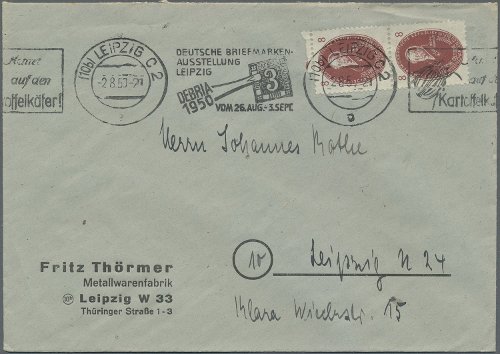 Achtet
auf den
Kartoffelkäfer!
(10b) LEIPZIG C 2
-2.8.50-21
a
DEUTSCHE BRIEFMARKEN-
AUSSTELLUNG
LEIPZIG
DEBRIA
1950
3
VOM 26.AUG.-3.SEPT.
(10b) LEIPZIG C 2
-2.8.50-21
a
8
8
auf
Kartoffelk
Herrn Johannes Rothe
10 Leipzig N 24
Klara Wieckstr. 15
Fritz Thörmer
Metallwarenfabrik
10b Leipzig W 33
Thüringer Straße 1-3